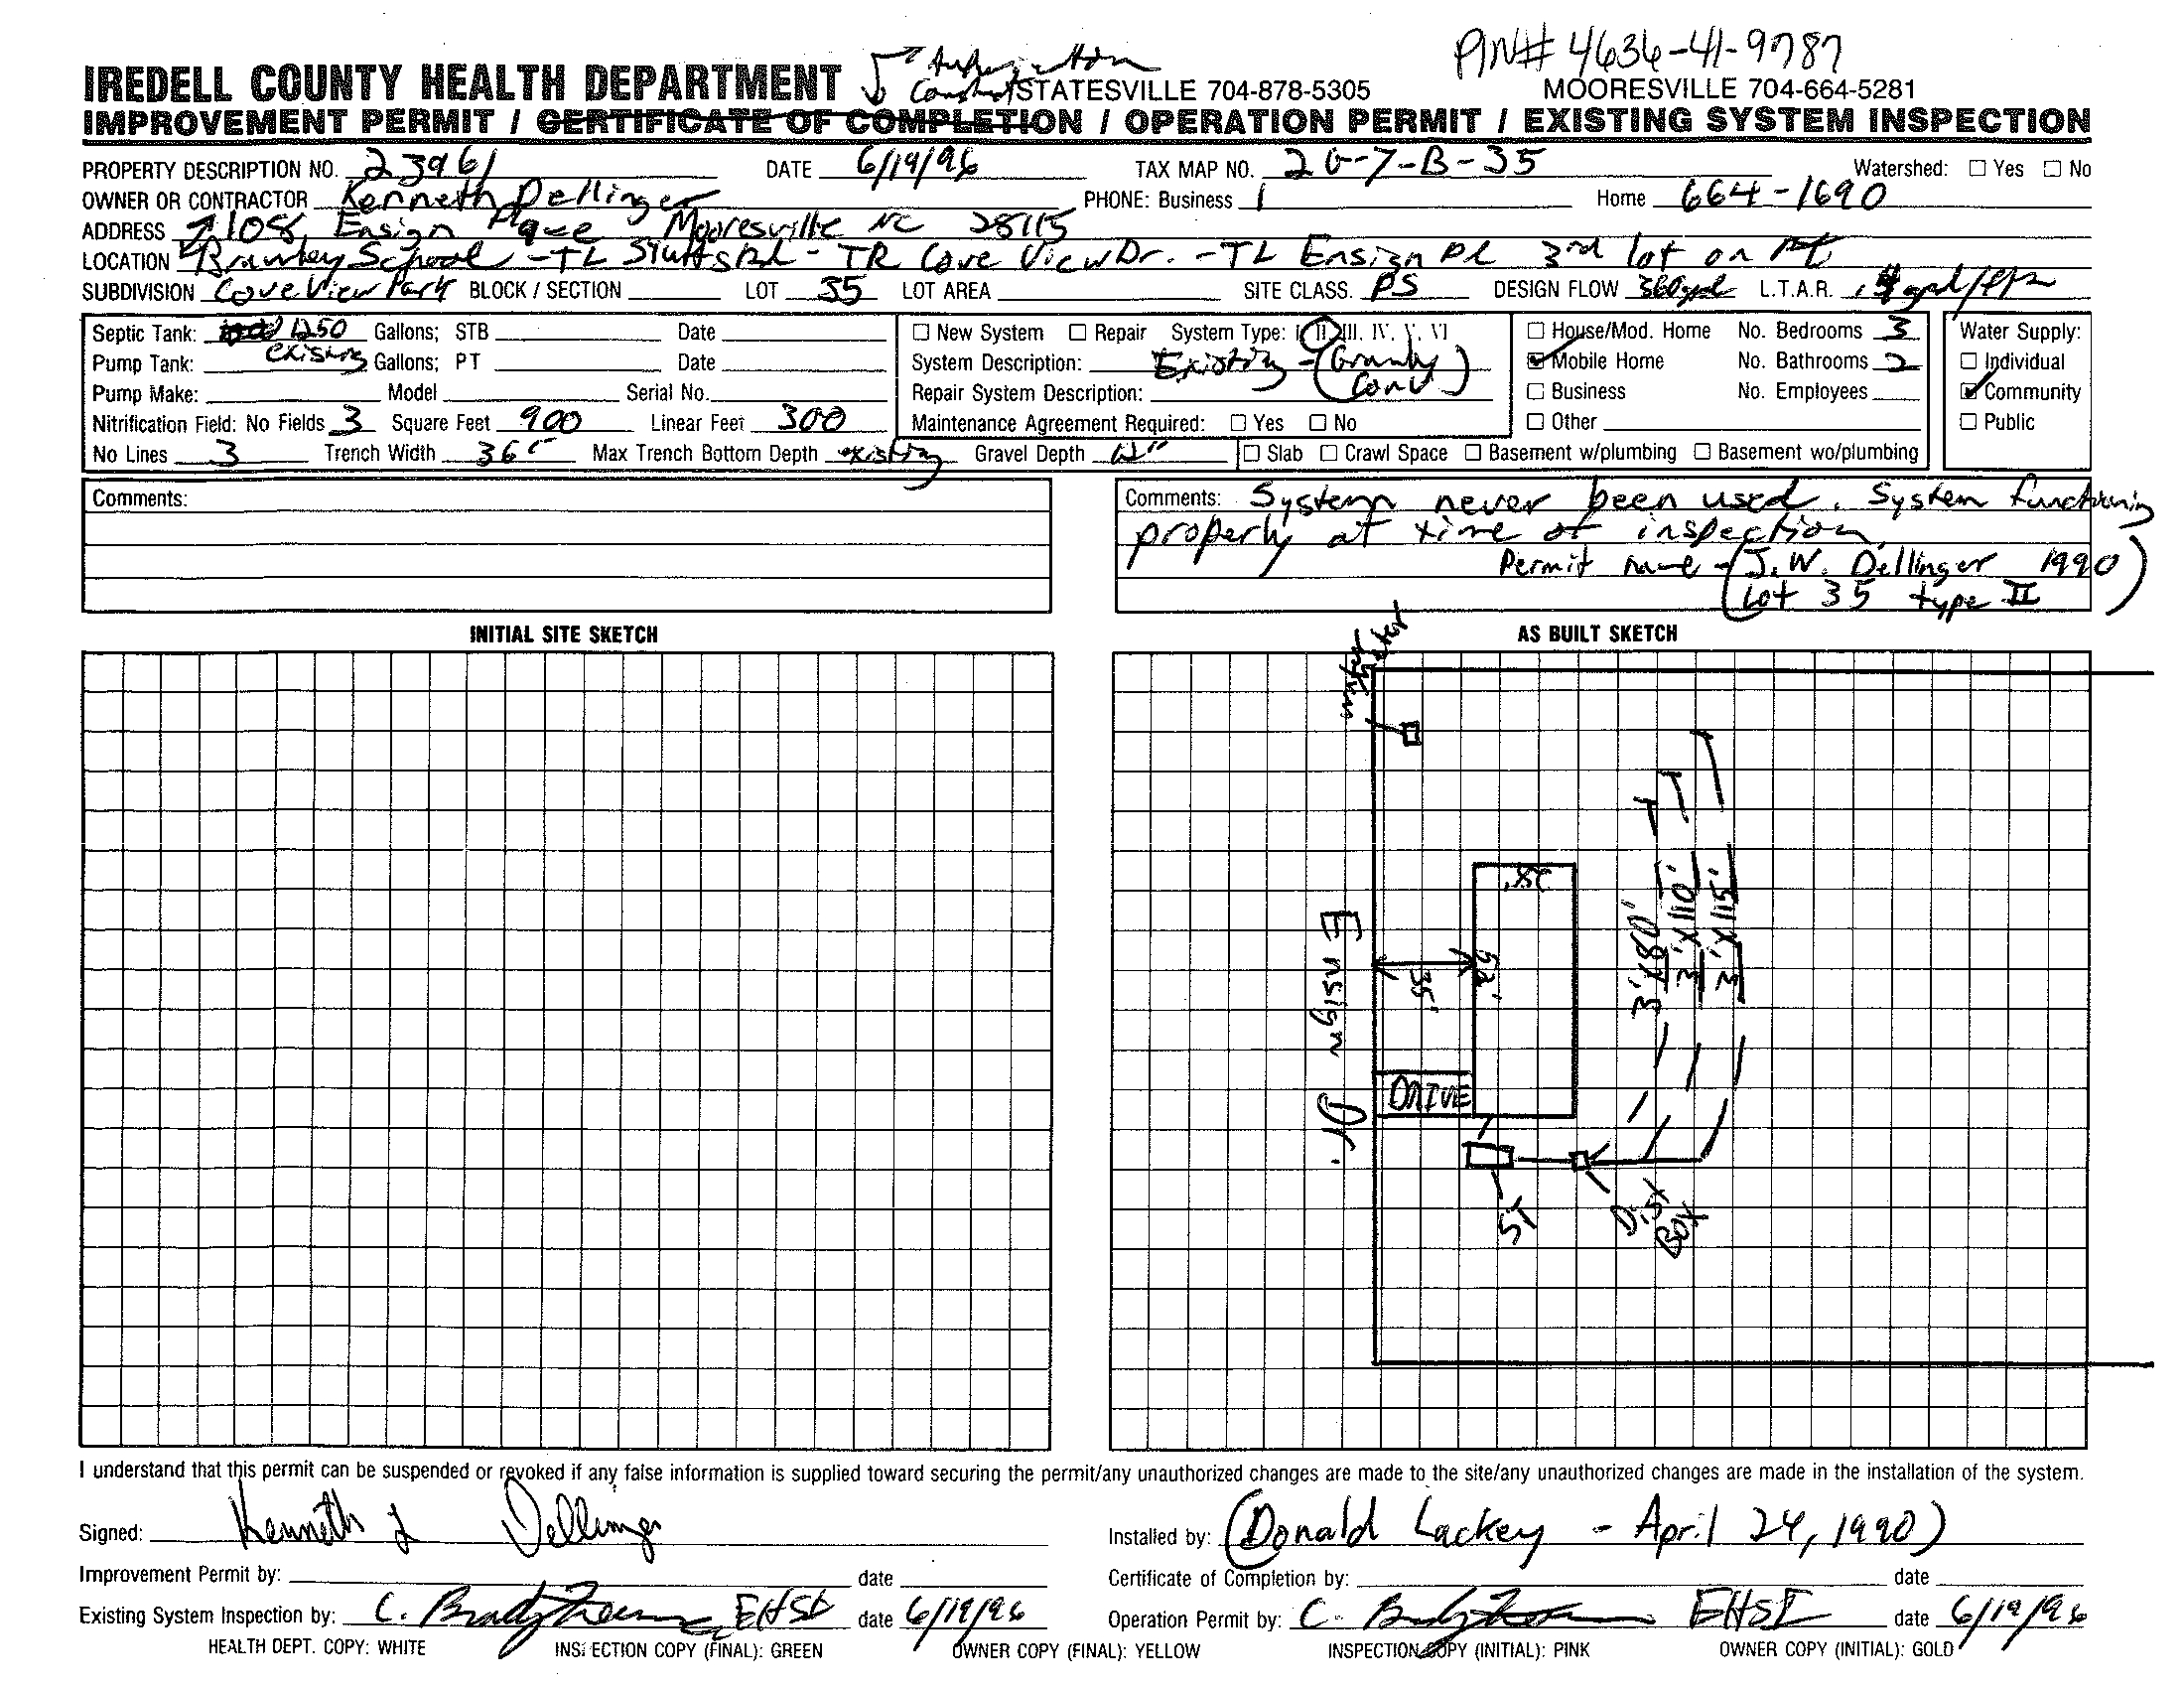 PIN# 4636-41-9787
Authorization
IREDELL COUNTY HEALTH DEPARTMENT Construct STATESVILLE 704-878-5305 MOORESVILLE 704-664-5281
IMPROVEMENT PERMIT / CERTIFICATE OF COMPLETION / OPERATION PERMIT / EXISTING SYSTEM INSPECTION
PROPERTY DESCRIPTION NO. 23961 DATE 6/19/96 TAX MAP NO. 20-7-B-35 Watershed: ☐ Yes ☐ No
OWNER OR CONTRACTOR Kenneth Dellinger PHONE: Business / Home 664-1690
ADDRESS 108 Ensign Place Mooresville NC 28115
LOCATION Brawley School - TL Stutts Rd - TR Cove View Dr. - TL Ensign Pl 3rd lot on Rt
SUBDIVISION Cove View Park BLOCK / SECTION LOT 35 LOT AREA SITE CLASS. PS DESIGN FLOW 360gpd L.T.A.R. .4 gpd/ft2
Septic Tank: 1250 Gallons; STB Date ☐ New System ☐ Repair System Type: I, II, III, IV, V, VI ☐ House/Mod. Home No. Bedrooms 3 Water Supply:
Pump Tank: existing Gallons; PT Date System Description: Existing - (Gravity ☑ Mobile Home No. Bathrooms 2 ☐ Individual
Pump Make: Model Serial No. Repair System Description: Conv) ☐ Business No. Employees ☑ Community
Nitrification Field: No Fields 3 Square Feet 900 Linear Feet 300 Maintenance Agreement Required: ☐ Yes ☐ No ☐ Other ☐ Public
No Lines 3 Trench Width 36" Max Trench Bottom Depth existing Gravel Depth 12" ☐ Slab ☐ Crawl Space ☐ Basement w/plumbing ☐ Basement wo/plumbing
Comments:
Comments: System never been used. System functioning
properly at time of inspection.
Permit name - (J.W. Dellinger 1990)
(Lot 35 type II
INITIAL SITE SKETCH
AS BUILT SKETCH
water meter
28'
62'
35'
Ensign Dr.
DRIVE
3'X80'
3'X110'
3'X115'
ST
Dist Box
I understand that this permit can be suspended or revoked if any false information is supplied toward securing the permit/any unauthorized changes are made to the site/any unauthorized changes are made in the installation of the system.
Signed: Kenneth L Dellinger Installed by: (Donald Lackey - April 24, 1990)
Improvement Permit by: date Certificate of Completion by: date
Existing System Inspection by: C. Brady EHSI date 6/19/96 Operation Permit by: C. Brady EHSI date 6/19/96
HEALTH DEPT. COPY: WHITE INSPECTION COPY (FINAL): GREEN OWNER COPY (FINAL): YELLOW INSPECTION COPY (INITIAL): PINK OWNER COPY (INITIAL): GOLD